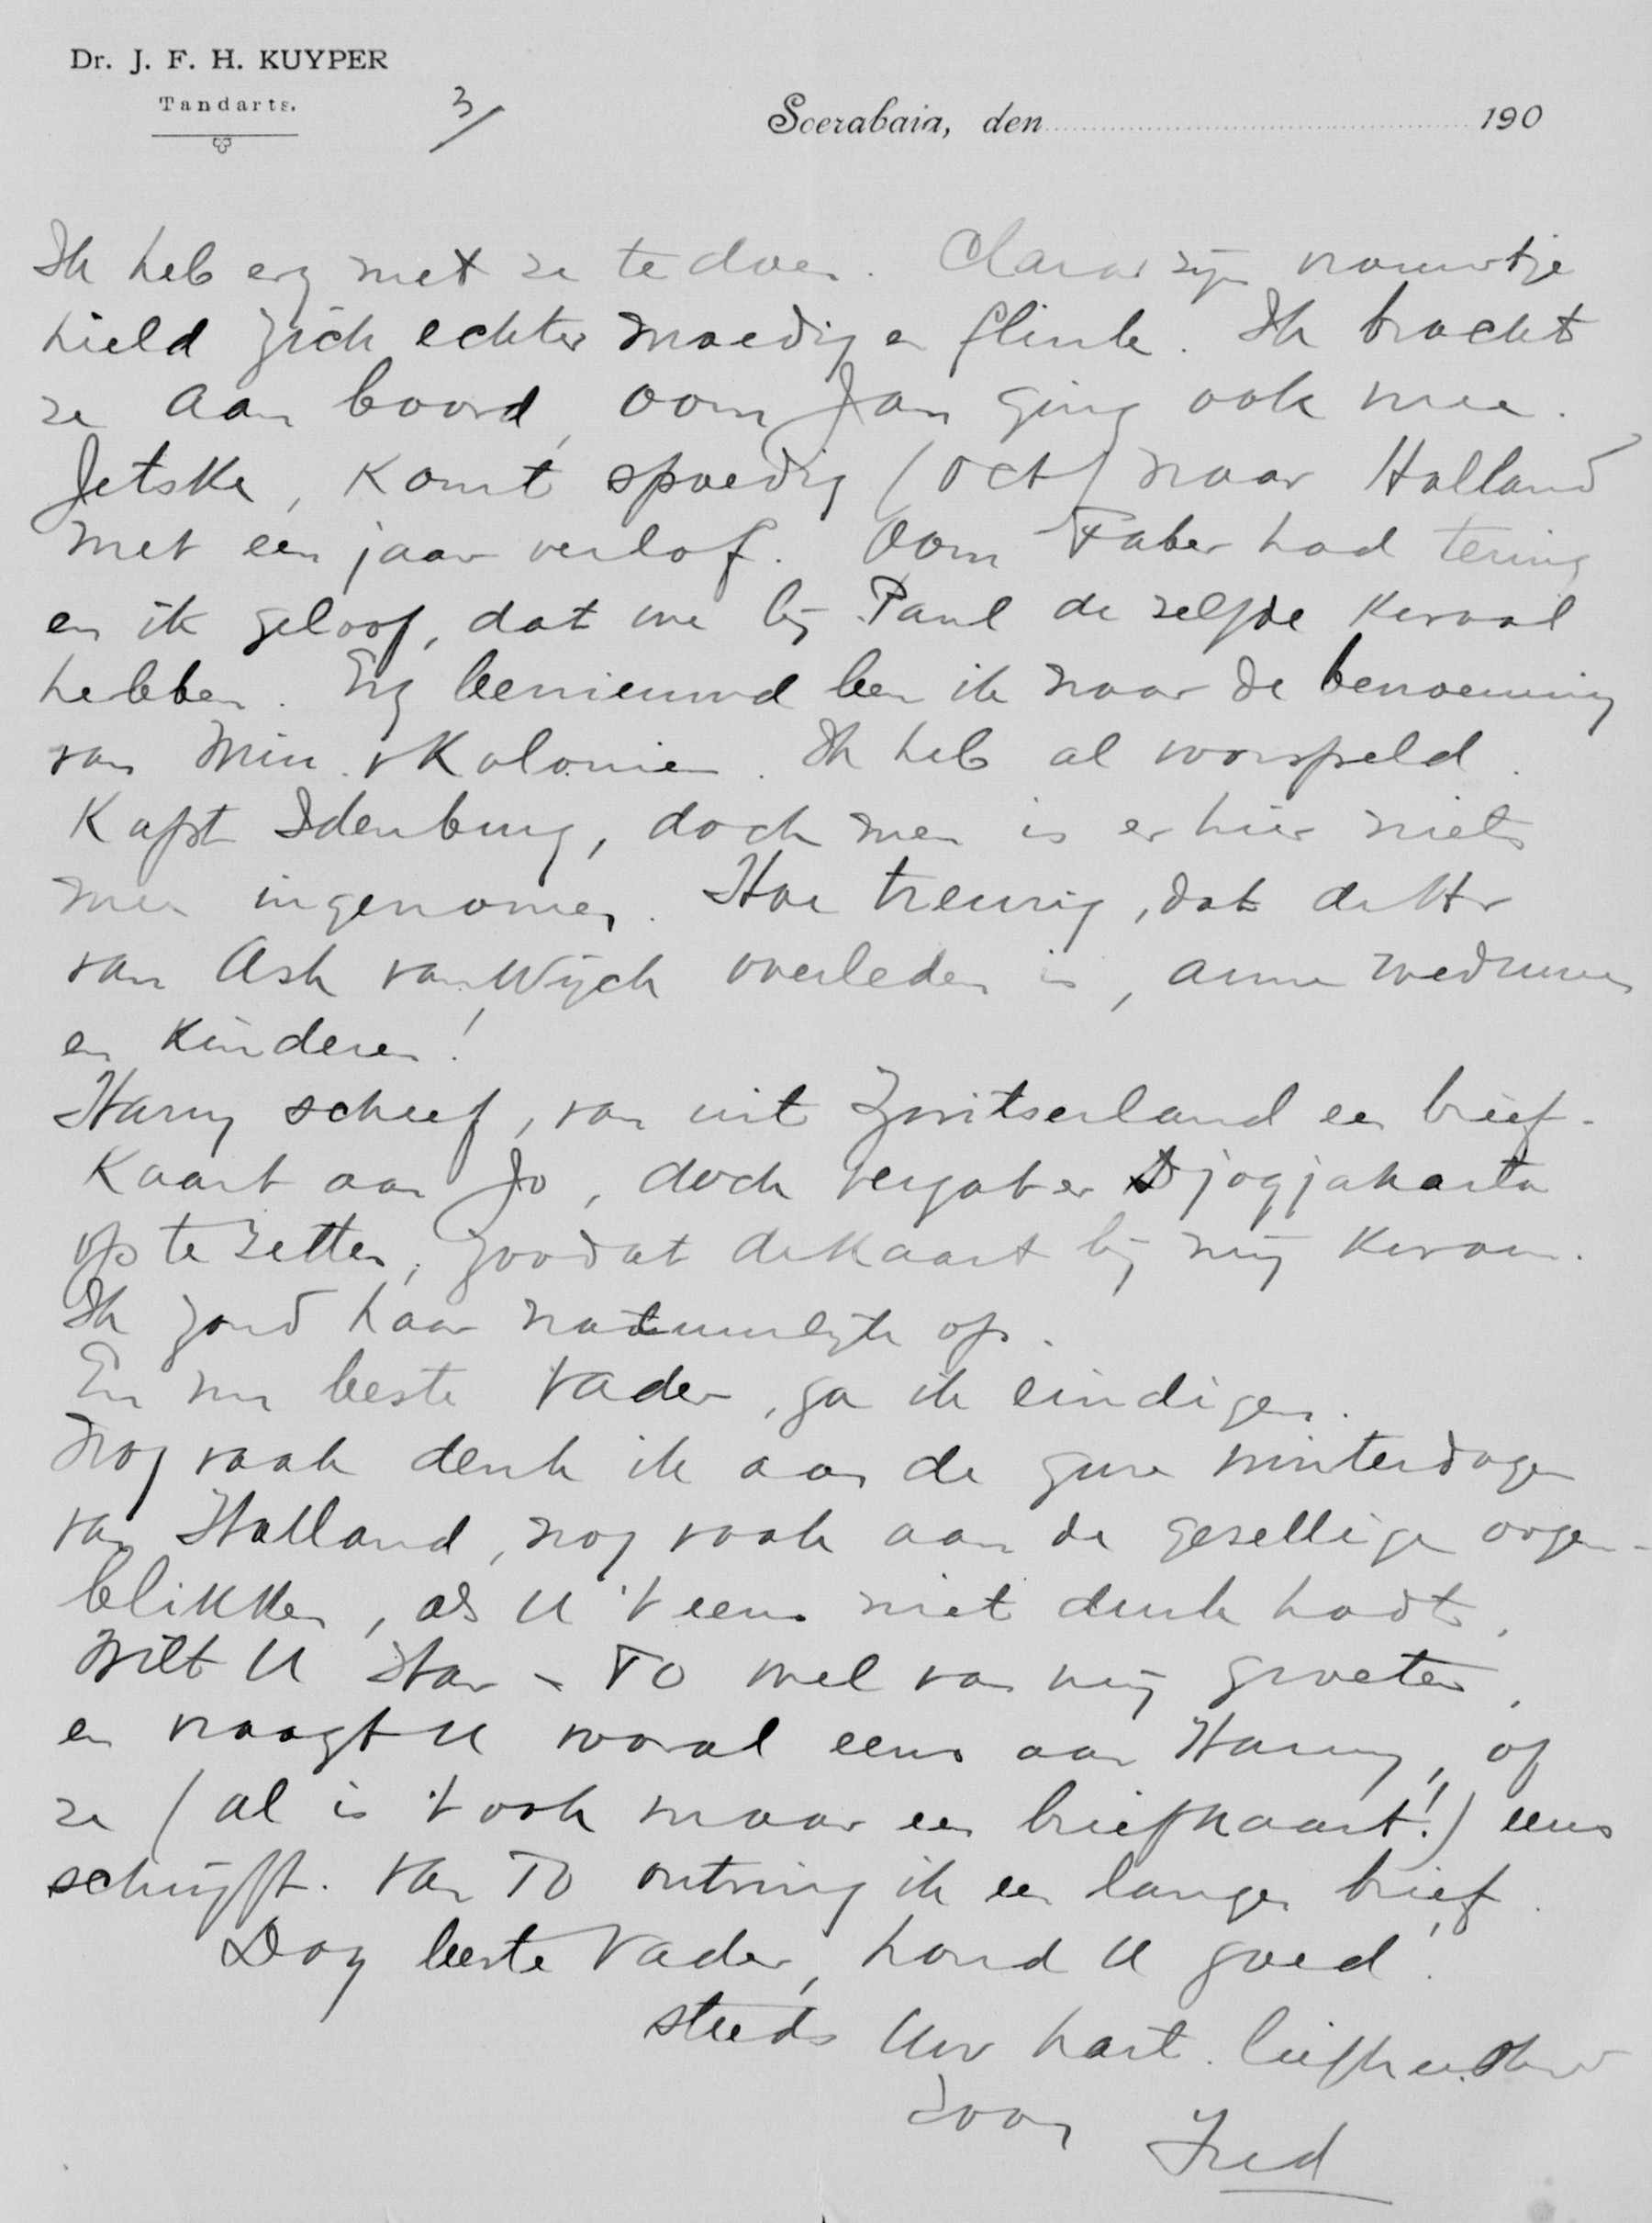 Dr. J. F. H. KUYPER
Tandarts.
3/
Soerabaia, den 190
Ik heb erg met ze te doen. Clara zijn vrouwtje
hield zich echter moedig en flink. Ik bracht
ze aan boord, oom Jan ging ook mee.
Jetske, komt spoedig (Oct) naar Holland
met een jaar verlof. Oom Faber had tering
en ik geloof, dat we bij Paul de zelfde kwaal
hebben. Erg benieuwd ben ik naar de benoeming
van Min. v Kolonien. Ik heb al voorspeld.
Kapt Idenburg, doch men is er hier niets
mee ingenomen. Hoe treurig, dat de Hr
van Ash van Wijck overleden is, arme weduwe
en kinderen!
Harry schreef, van uit Zwitserland een brief-
kaart aan Jo, doch vergat er Djogjakarta
op te zetten, zoodat de kaart bij mij kwam.
Ik zond haar natuurlijk op.
En nu beste Vader, ga ik eindigen.
Nog vaak denk ik aan de gure winterdagen
van Holland, nog vaak aan de gezellige oogen-
blikken, als U 't eens niet druk hadt.
Wilt U Har & To wel van mij groeten,
en vraagt U vooral eens aan Harry, of
ze (al is 't ook maar een briefkaart!) eens
schrijft. Van To ontving ik een langen brief.
Dag beste Vader, houd U goed!
steeds Uw hart. liefheb.
zoon Fred